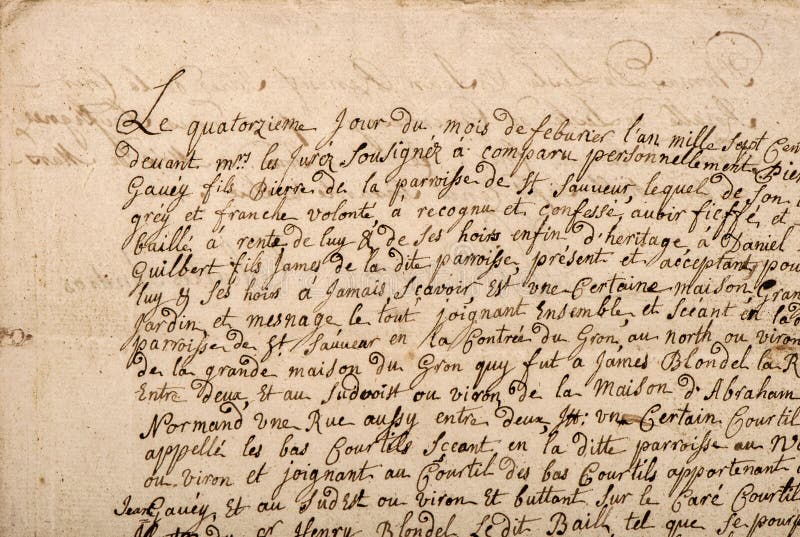 Le quatorzieme Jour du mois de feburier l'an mille Sept Cen
devant mrs les Juréz Sousignéz a comparu personnellement Pier
Gavéy fils Pierre de la parroisse de St Sauveur, lequel de Son
gréy et franche volonté, à recognu et confessé, aubir fieffé, et
baillé à rente de luy & de ses hoirs enfin d'heritage, à Daniel
Guilbert fils James de la dite parroisse, présent et acceptant, pou
luy & ses hoirs à Jamais, Scavoir, Est vne Certaine maison, Gran
Jardin, et mesnage le tout joignant Ensemble et Scéant en la
parroisse de St Sauveur en la Contrée du Gron, au north ou viron
de la grande maison du Gron quy fut a James Blondel la R
Entre deux, Et au Sudvoist ou viron de la Maison d'Abraham
Normand vne Rue aussy entre deux, Itt: vn Certain Courtil
appellé les bas Courtils Scéant en la ditte parroisse au
ou viron et joignant au Courtil des bas Courtils appartenant
Jean Gavéy, Et au Sudest ou viron Et buttant Sur le Caré Courtil
du Sr Henry Blondel Ledit Baill tel que se pourp